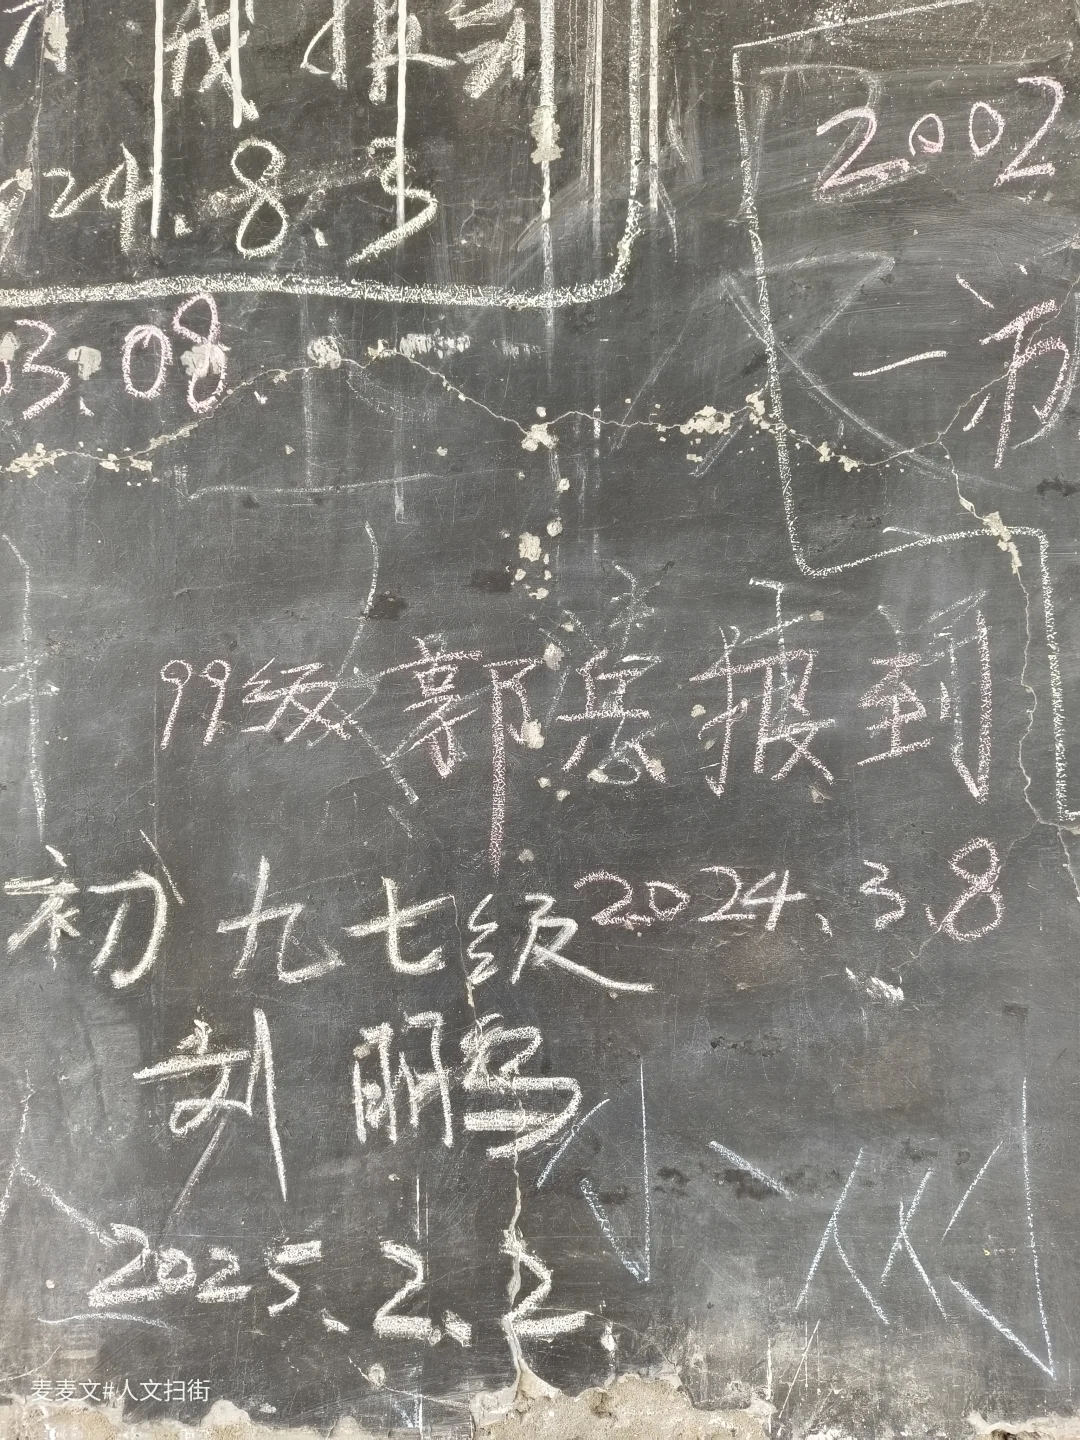 成报到
24.8.3
2002
03.08.
99级郭宾报到
2024.3.8
初九七级
刘鹏
2025.2.2
麦麦文#人文扫街